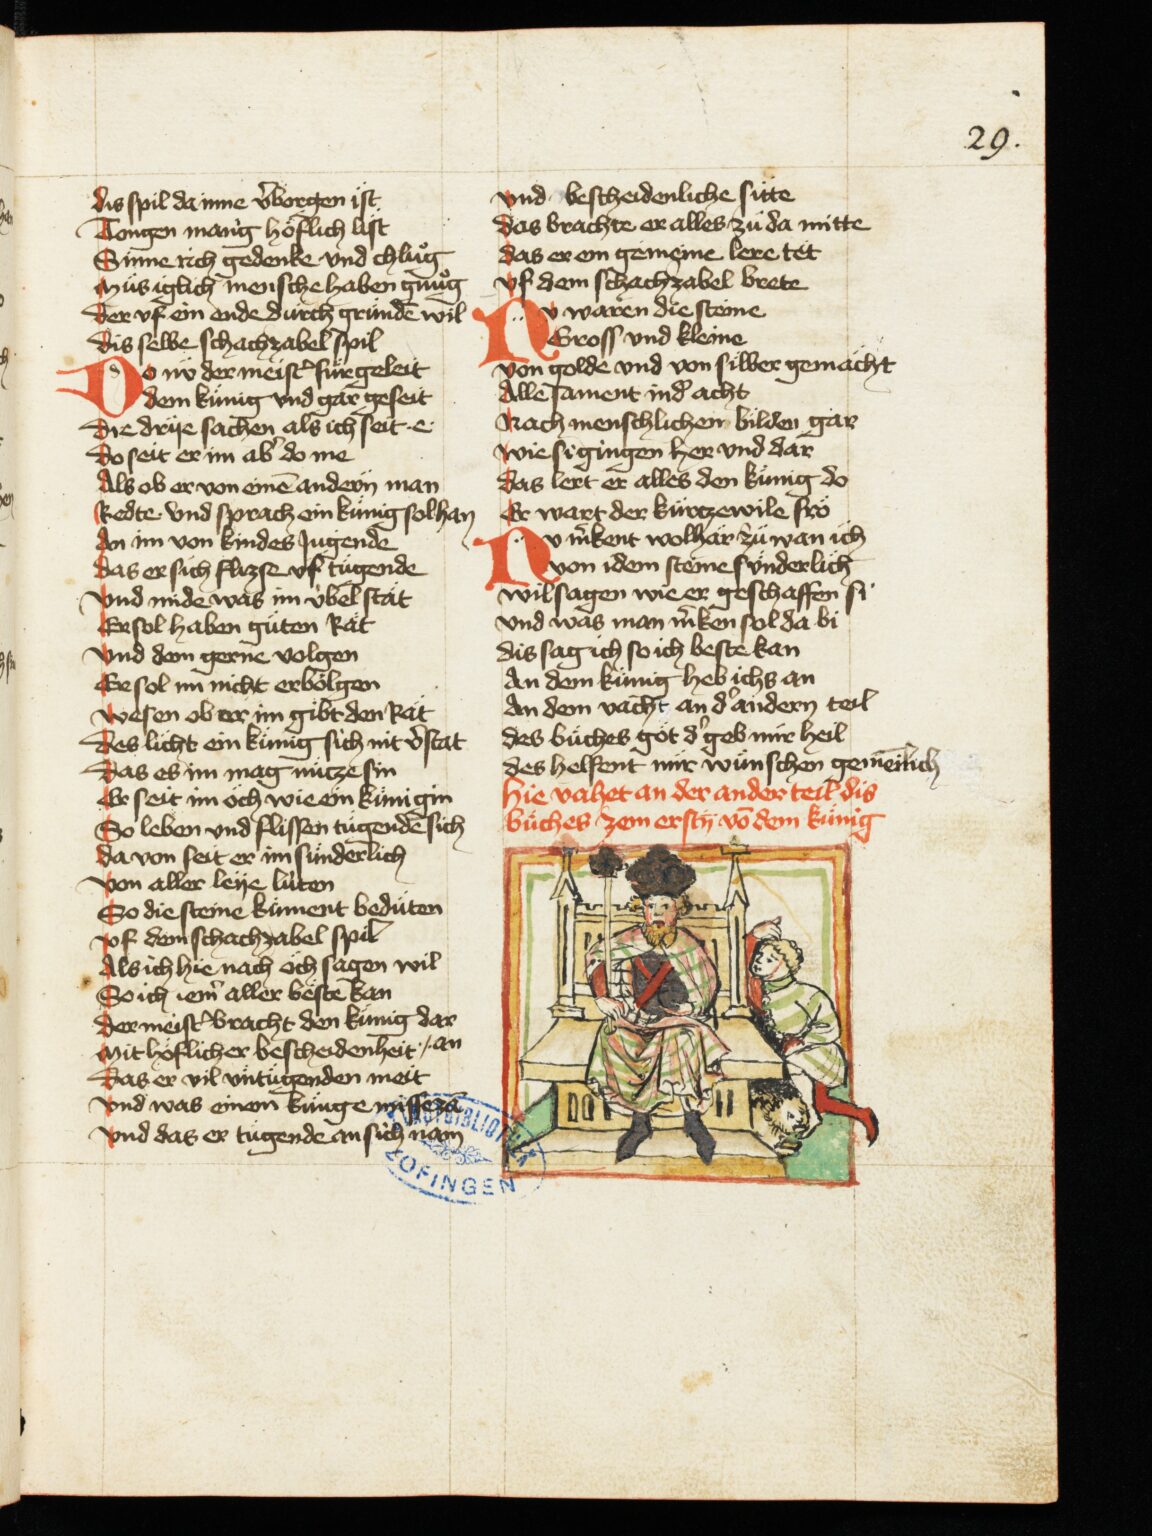 29.
dis spil da inne v̾borgen ist
Tougen manig höflich list
Sinne rich gedenke und chlůg
Müsiglich mensche haben gnůg
der uf ein ende durch gründē wil
dis selbe schachzabel spil
Do nv der meist̾ für geleit
dem künig vnd gar geseit
die drije sachen als ich seit .e.
do seit er im ab̾ do me
Als ob er von einē andern man
Redte vnd sprach ein künig sol han
An im von kindes Jugende
das er sich flizse vf tugende
vnd mide was im v́bel stat
Er sol haben güten Rat
vnd dem gerne volgen
Er sol im nicht erbolgen
wesen ob er im gibt den Rat
des licht ein künig sich nit v̾stat
das es im mag nütze sin
Er seit im öch wie ein künigin
So leben vnd flissen tugendē sich
da von seit er im sunderlich
von aller leije lüten
So die steine künnent bedüten
vf dem schachzabel spil
Als ich hie nach öch sagen wil
So ich iem̾ aller beste kan
der meist̾ bracht den künig dar
Mit höflicher bescheidenheit / an
das er vil vntugenden meit
vnd was einem künge missezā
vnd das er tugende an sich nam
vnd bescheidenliche sitte
das brachte er alles zü da mitte
das er ein gemeine lere tet
vf dem schachzabel brete
Nv waren die steine
Gross vnd kleine
von golde vnd von silber gemacht
Alle sament in d̾ acht
Nach menschlichen bilden gar
wie si gingen her vnd dar
das lert er alles den künig do
Er wart der kürtzewile fro
Nv m̾kent wolhar zü wan ich
von idem steine sunderlich
wil sagen wie er geschaffen si
vnd was man m̾ken sol da bi
dis sag ich so ich beste kan
An dem künig heb ichs an
An dem vacht an d̾ andern teil
des büches got d̾ geb mir heil
des helfent mir wünschen gemeīlich
hie vahet an der ander teil dis
büches zem ersten võ dem künig
STADTBIBLIOTHEK
ZOFINGEN